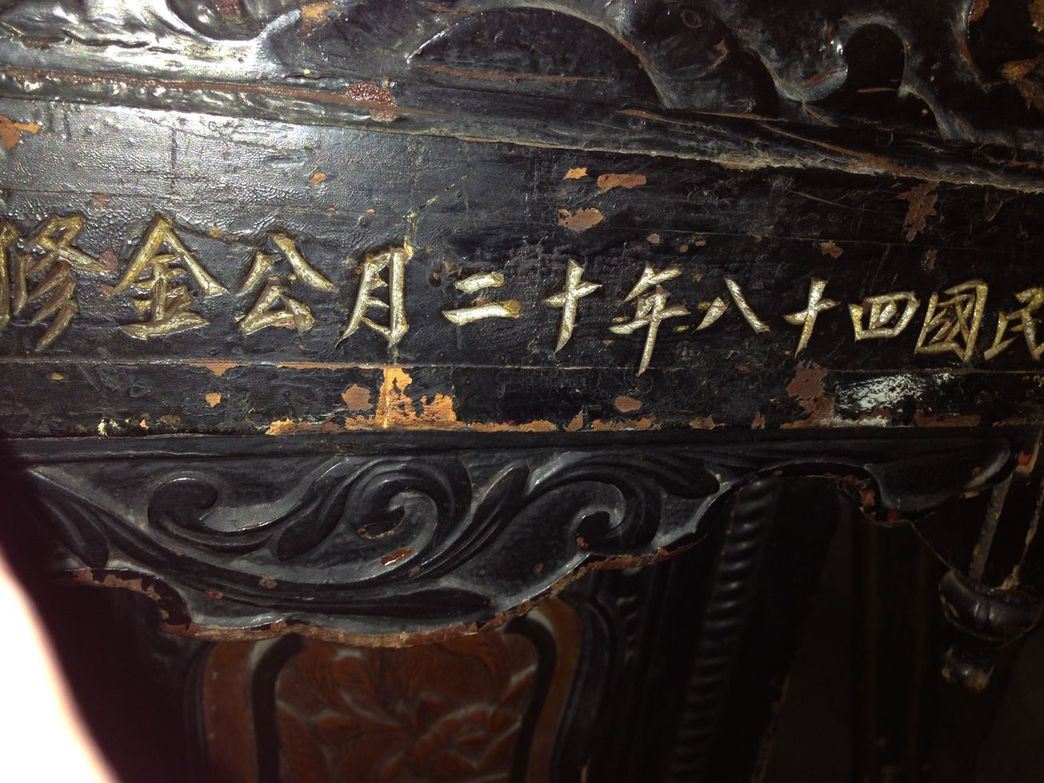 民國四十八年十二月公金修